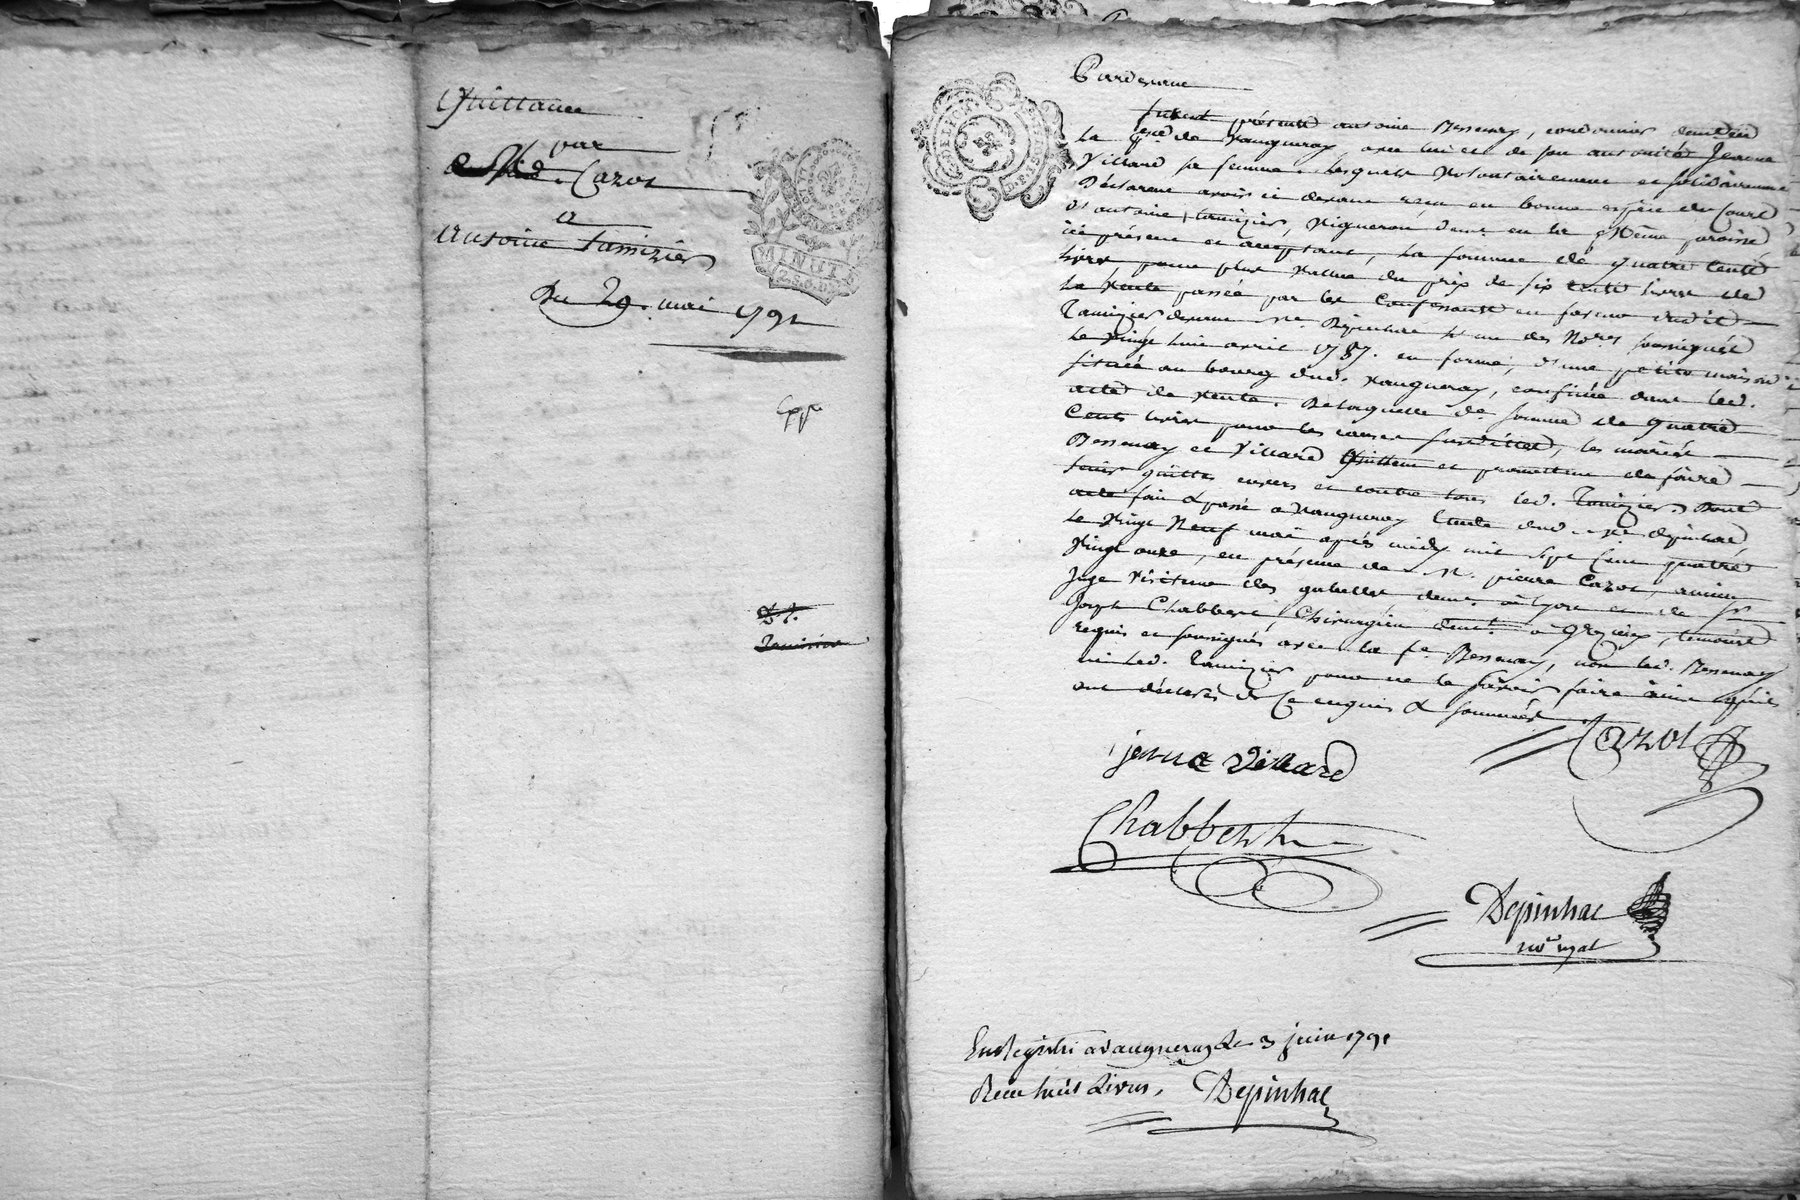 Quittance
par
Cazot
a
Antoine Tamizier
Du 29. mai 1791
MINUTE
Tamizier
Pardevant
furent présents antoine Bessenay, cordonnier demt en
la psse de Vaugneray, avec lui et de son autorité Jeanne
Villard sa femme. Lesquels volontairement et solidairement
Déclarent avoir ci devant reçu en bonne espèce du Cours
d'antoine Tamizier, Vigneron demt en la même paroisse
ici présent et acceptant, la somme de quatre Cents
livres pour plus value du prix de six Cents livres de
La Vente passée par les Confessants en faveur dudit
Tamizier devant Me Dépinhac l'un des Nores soussignés
le Vingt huit avril 1787. en forme, d'une petite maison
située au bourg dud. Vaugneray, confinée dans led.
acte de Vente. De laquelle de somme de quatre
Cents livres pour les causes susdittes, les mariés
Bessenay et Villard Quittent et promettent de faire
tenir quitte envers et contre tous led. Tamizier. Dont
acte fait & passé a Vaugneray Etude dud. Me Dépinhac
le Vingt Neuf mai après midy mil sept Cent quatre
Vingt onze, en présence de M. pierre Cazot, ancien
Juge Visiteur des gabelles demt. à Lyon et de Sr
Joseph Chabbert, Chirurgien demt. à Grézieux, temoins
requis et soussignés avec la fe. Bessenay, non led. Bessenay
ni led. Tamizier pour ne le sçavoir faire ainsi qu'ils
ont déclaré de Ce enquis & sommés
Cazot
jeane villard
Chabbert
Depinhac
nore royal
Enregistré a vaugneray le 3 juin 1791
Reçu huit Livres, Depinhac